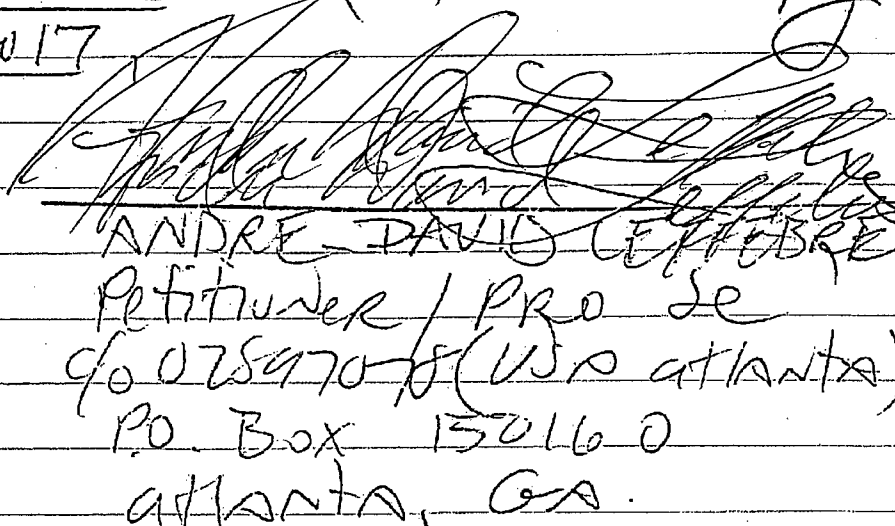 017
ANDRE DAVID LEFFEBRE
Petitioner / PRO Se
c/o (USP atlanta)
P.O. Box 150160
atlanta, GA.